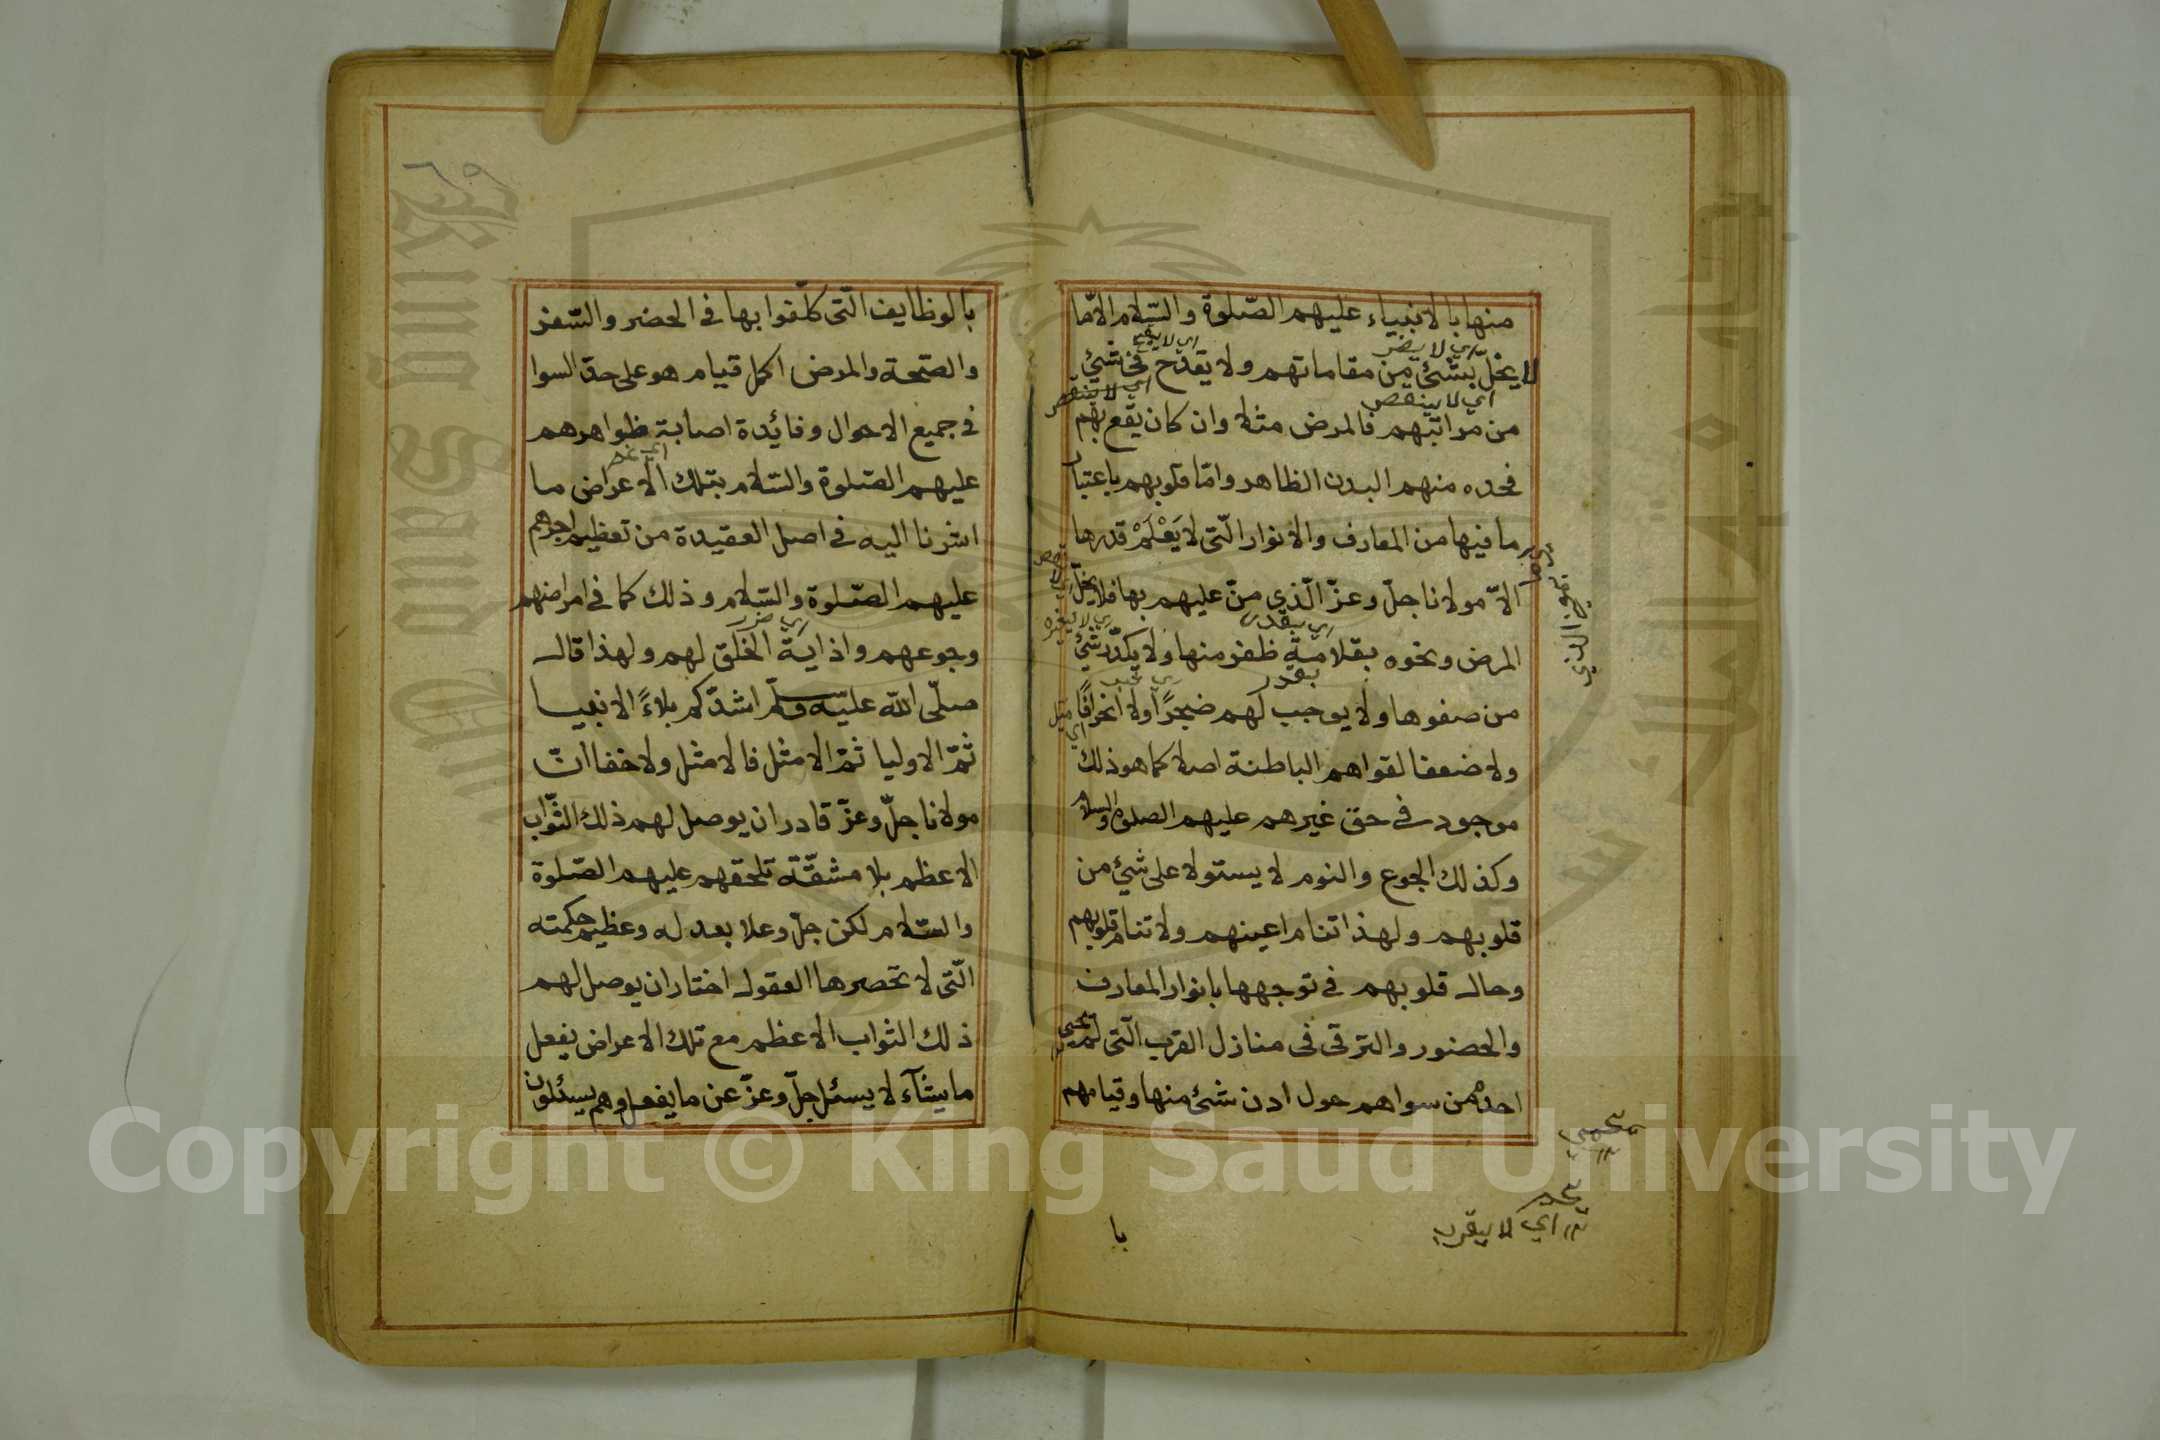 منها بالانبياء عليهم الصّلوة والسّلام الا ما
لا يخلّ بشئ من مقاماتهم ولا يقدح في شئ
من مراتبهم فالمرض مثلا وان كان يقع بهم
فحده منهم البدن الظاهر وامّا قلوبهم باعتبار
ما فيها من المعارف والانوار الّتى لا يَعْلَمْ قدرها
الاّ مولانا جلّ وعزّ الّذي منّ عليهم بها فلا يخلّ
المرض ونحوه بقلامة ظفر منها ولا يكدّر شئ
من صفوها ولا يوجب لهم ضجرًا ولا انحرافًا
ولا ضعفا لقواهم الباطنة اصلا كما هو ذلك
موجود فى حق غيرهم عليهم الصلوة والسلام
وكذلك الجوع والنوم لا يستولا على شئ من
قلوبهم ولهذا تنام اعينهم ولا تنام قلوبهم
وحال قلوبهم فى توجهها بانوار المعارف
والحضور والترقى فى منازل القرب الّتى لم
احد من سواهم حول ادن شئ منها وقيامهم
اي لا يضر
اي لا ينقص
اي لا ينقص
بقدر
اي لا يقرب
با
٦٩
بالوظايف الّتى كلّفوا بها فى الحضر والسّفر
والصّحة والمرض اكمل قيام هو على حد السوا
فى جميع الاحوال وفائدة اصابة ظواهرهم
عليهم الصّلوة والسّلام بتلك الاعراض ما
اشرنا اليه فى اصل العقيدة من تعظيم اجرهم
عليهم الصّلوة والسّلام وذلك كما فى امراضهم
وجوعهم واذاية الخلق لهم ولهذا قال
اي ضرر
صلّى اللّه عليه وسلّم اشدّكم بلاءً الانبيا
ثمّ الاوليا ثمّ الامثل فالامثل ولا خفا انّ
مولانا جلّ وعزّ قادر ان يوصل لهم ذلك الثّواب
الاعظم بلا مشقّة تلحقهم عليهم الصّلوة
والسّلام لكن جلّ وعلا بعدله وعظيم حكمته
الّتى لا تحصرها العقول اختار ان يوصل لهم
ذلك الثواب الاعظم مع تلك الاعراض يفعل
ما يشآء لا يسئل جلّ وعزّ عن ما يفعل وهم يسئلون
Copyright © King Saud University
King Saud University